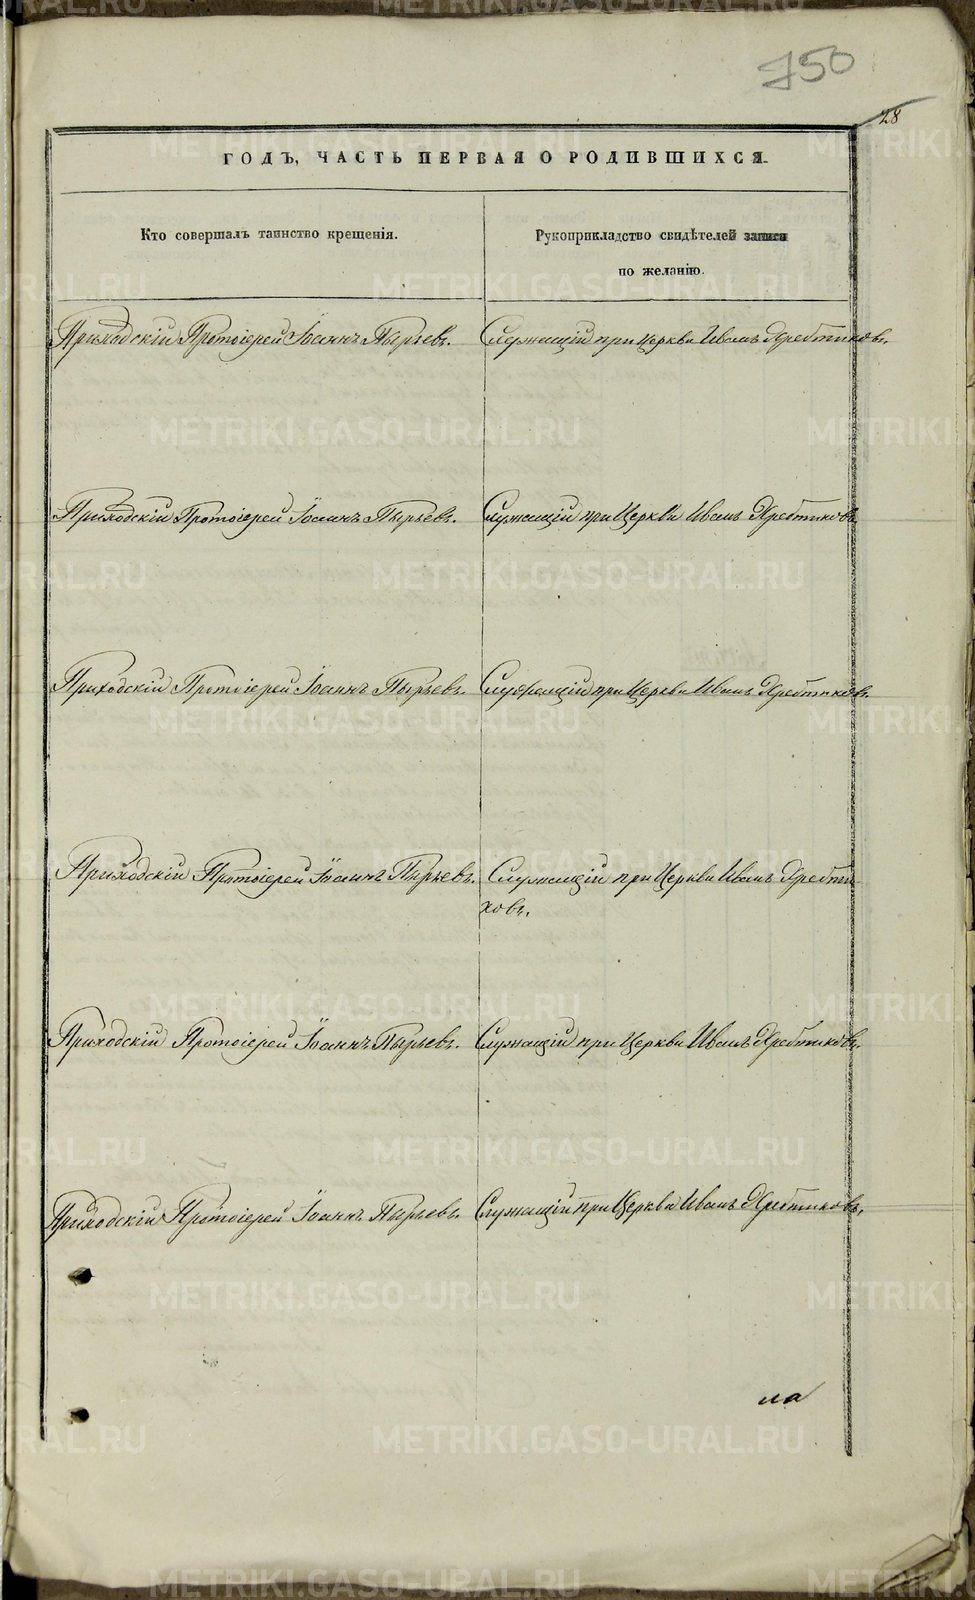 750
28
ГОДЪ, ЧАСТЬ ПЕРВАЯ О РОДИВШИХСЯ.
Кто совершалъ таинство крещенія.
Рукоприкладство свидѣтелей записи
по желанію.
Приходскій Протоіерей Іоаннъ Пырьевъ. Служащій при Церкви Иванъ Хребтиковъ.
Приходскій Протоіерей Іоаннъ Пырьевъ. Служащій при Церкви Иванъ Хребтиковъ
Приходскій Протоіерей Іоаннъ Пырьевъ. Служащій при Церкви Иванъ Хребтиковъ.
Приходскій Протоіерей Іоаннъ Пырьевъ. Служащій при Церкви Иванъ Хребти
ковъ.
Приходскій Протоіерей Іоаннъ Пырьевъ. Служащій при Церкви Иванъ Хребтиковъ.
Приходскій Протоіерей Іоаннъ Пырьевъ. Служащій при Церкви Иванъ Хребтиковъ.
ла
METRIKI.GASO-URAL.RU